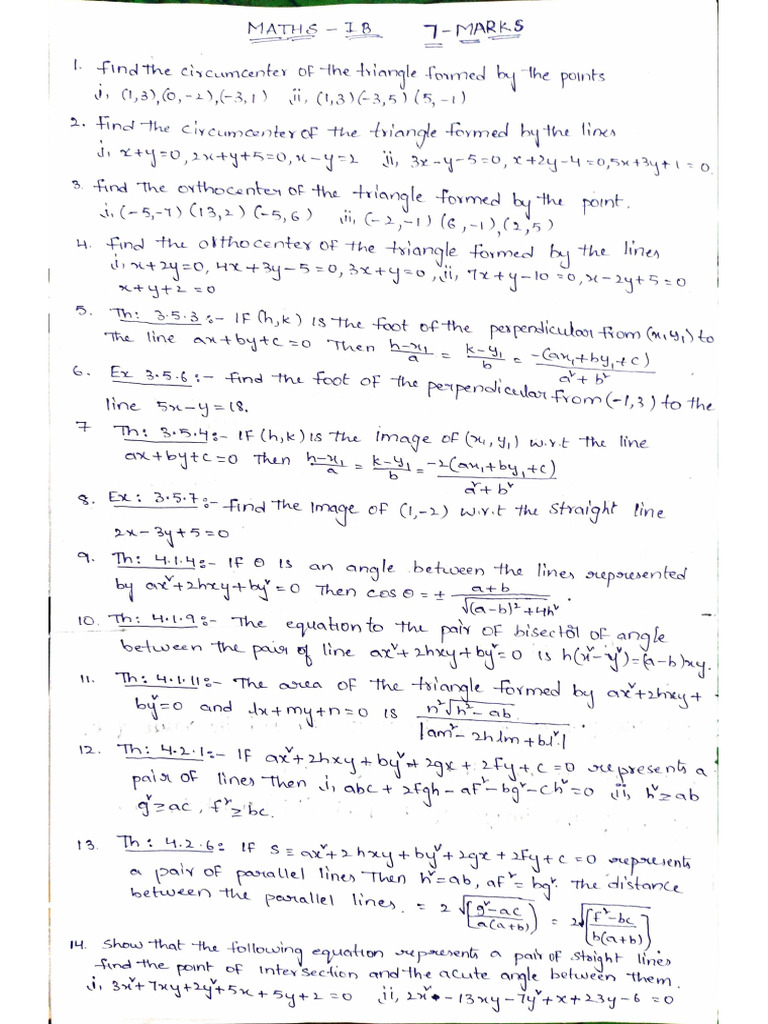 MATHS - IB 7-MARKS
1. Find the circumcenter of the triangle formed by the points
i, (1,3),(0,-2),(-3,1) ii, (1,3)(-3,5)(5,-1)
2. Find the circumcenter of the triangle formed by the lines
i, x+y=0, 2x+y+5=0, x-y=2 ii, 3x-y-5=0, x+2y-4=0, 5x+3y+1=0.
3. find The orthocenter of the triangle formed by the point.
i, (-5,-7) (13,2) (-5,6) ii, (-2,-1) (6,-1),(2,5)
4. Find the orthocenter of the triangle formed by the lines
i, x+2y=0, 4x+3y-5=0, 3x+y=0, ii, 7x+y-10=0, x-2y+5=0
x+y+2=0
5. Th: 3.5.3:- IF (h,k) is the foot of the perpendicular from (x,y₁) to
The line ax+by+c=0 Then (h-x₁)/a = (k-y₁)/b = -(ax₁+by₁+c)/(a²+b²)
6. Ex 3.5.6:- find the foot of the perpendicular from (-1,3) to the
line 5x-y=18.
7 Th: 3.5.4:- IF (h,k) is the image of (x₁,y₁) w.r.t the line
ax+by+c=0 Then (h-x₁)/a = (k-y₁)/b = -2(ax₁+by₁+c)/(a²+b²)
8. Ex: 3.5.7:- Find the image of (1,-2) w.r.t the straight line
2x-3y+5=0
9. Th: 4.1.4:- IF θ is an angle between the lines represented
by ax²+2hxy+by²=0 Then cosθ = ± (a+b)/√((a-b)²+4h²).
10. Th: 4.1.9:- The equation to the pair of bisectol of angle
between the pair of line ax²+2hxy+by²=0 is h(x²-y²)=(a-b)xy.
11. Th: 4.1.11:- The area of the triangle formed by ax²+2hxy+
by²=0 and lx+my+n=0 is n²√(h²-ab)/|am²-2hlm+bl²|
12. Th: 4.2.1:- IF ax²+2hxy+by²+2gx+2fy+c=0 represents a
pair of lines then i, abc+2fgh-af²-bg²-ch²=0 ii, h²≥ab
g²≥ac, f²≥bc.
13. Th: 4.2.6: IF S≡ax²+2hxy+by²+2gx+2fy+c=0 represents
a pair of parallel lines Then h²=ab, af²=bg². The distance
between the parallel lines. = 2√((g²-ac)/(a(a+b))) = 2√((f²-bc)/(b(a+b)))
14. Show that the following equation represents a pair of stoight lines
find the point of intersection and the acute angle between them.
i, 3x²+7xy+2y²+5x+5y+2=0 ii, 2x²-13xy-7y²+x+23y-6=0